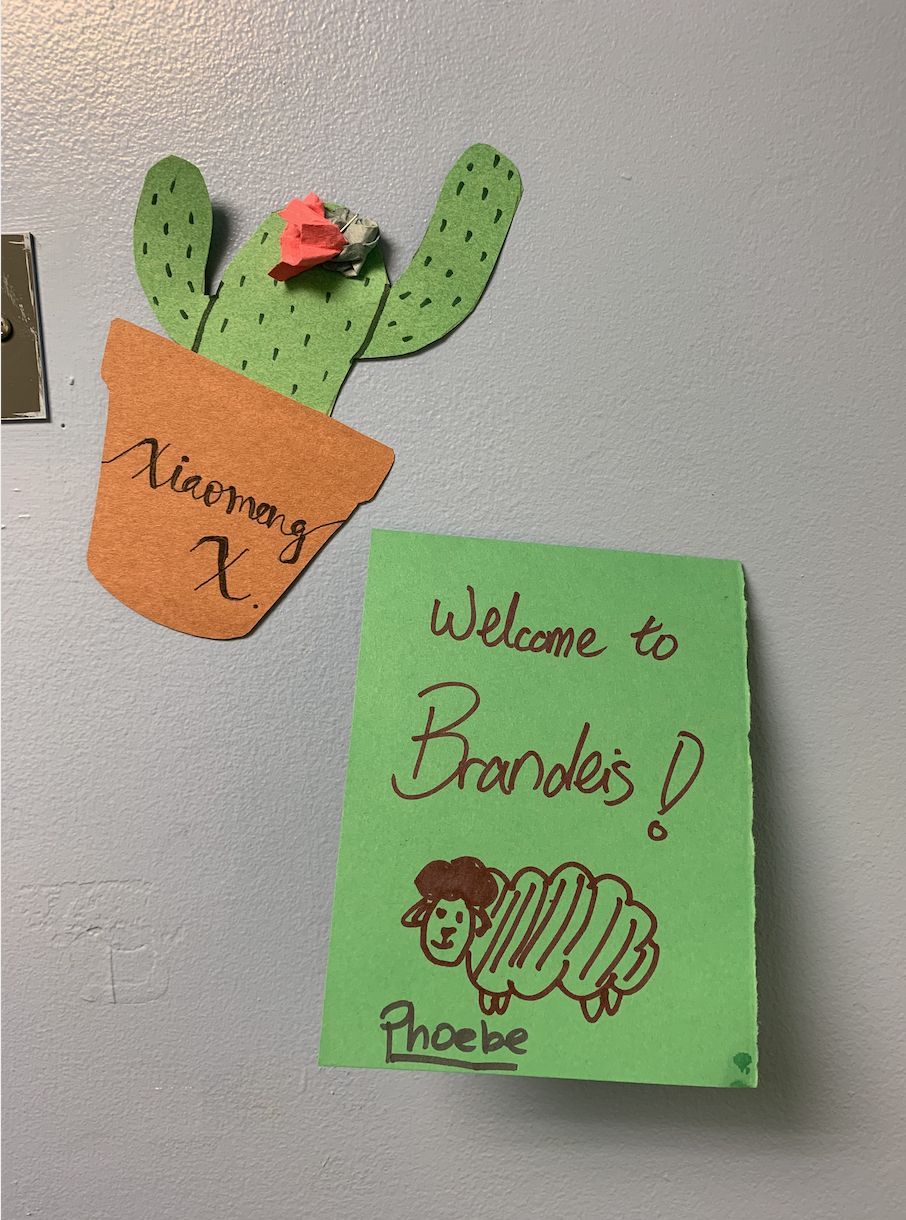 Xiaomeng
X.
Welcome to
Brandeis!
Phoebe